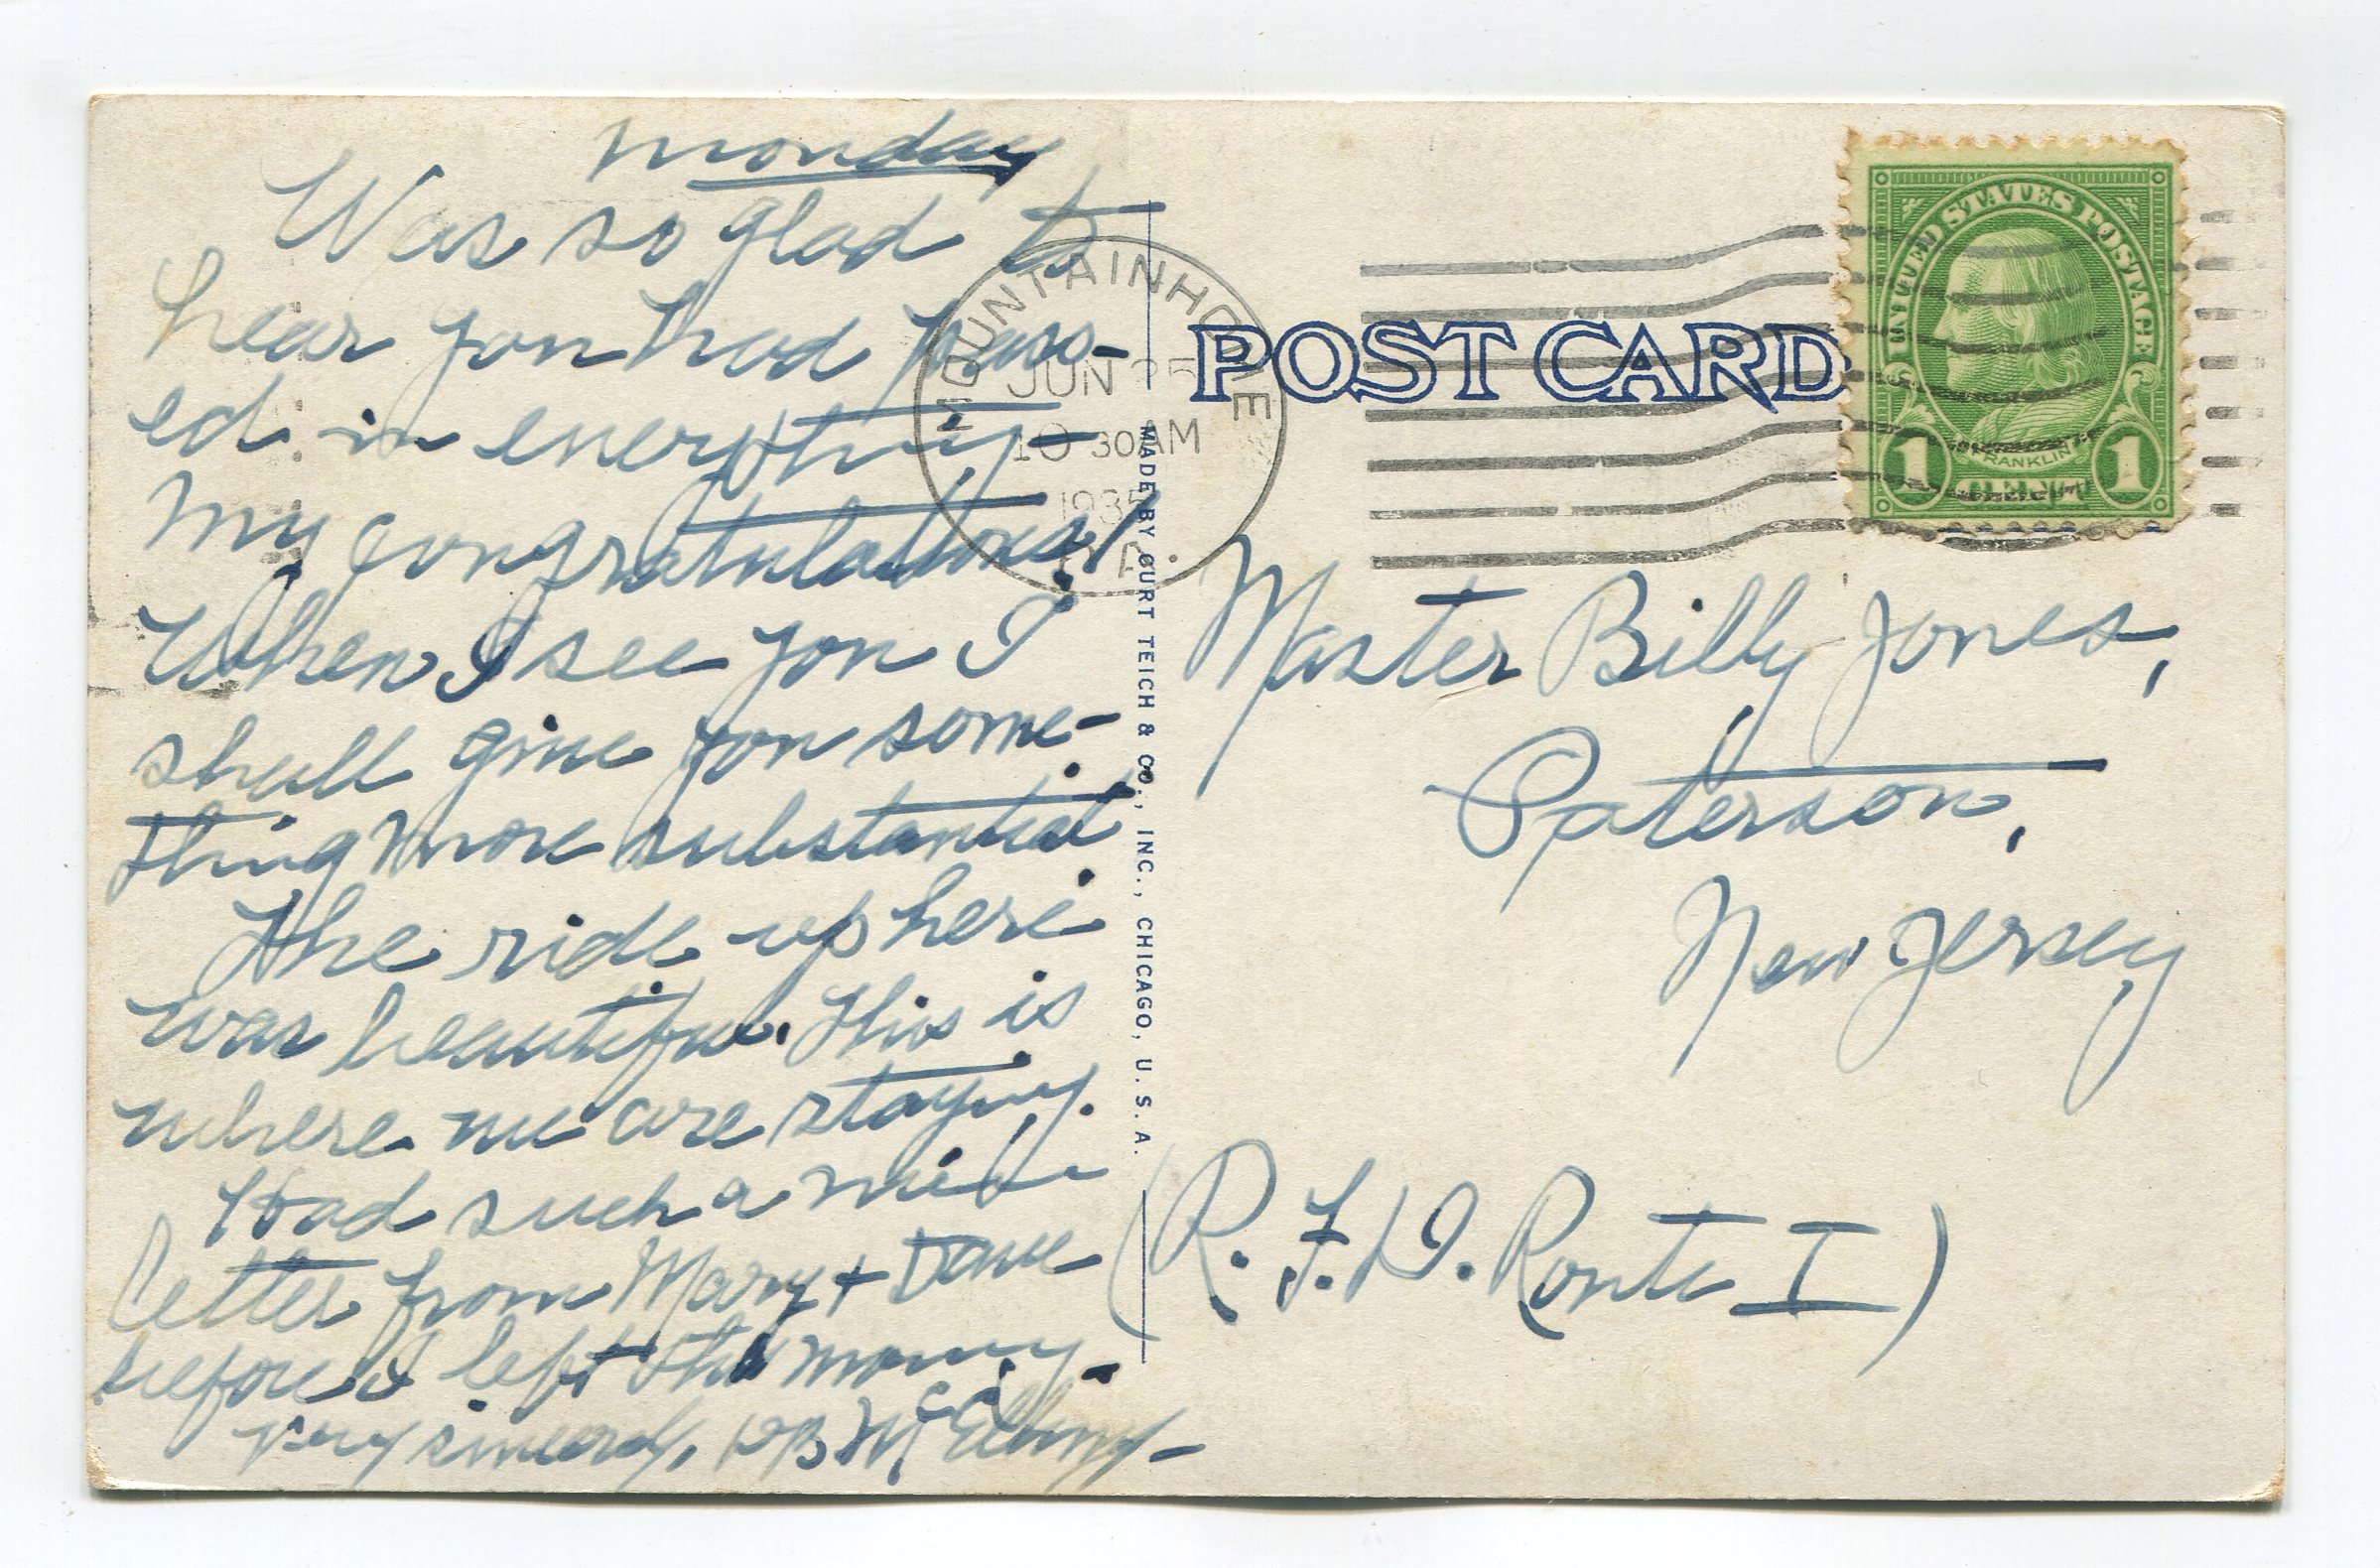 Monday
Was so glad to
hear you had pass-
ed in everything -
My congratulations!
When I see you I
shall give you some-
thing more substantial.
The ride up here
was beautiful. This is
where we are staying.
Had such a nice
letter from Mary + Dave
before I left this morning.
Very sincerely,
MOUNTAINHOME
JUN 25
10 30 AM
1935
PA.
POST CARD
UNITED STATES POSTAGE
FRANKLIN
1 CENT 1
MADE BY CURT TEICH & CO., INC., CHICAGO, U.S.A.
Master Billy Jones,
Paterson,
New Jersey
(R.F.D. Route I)